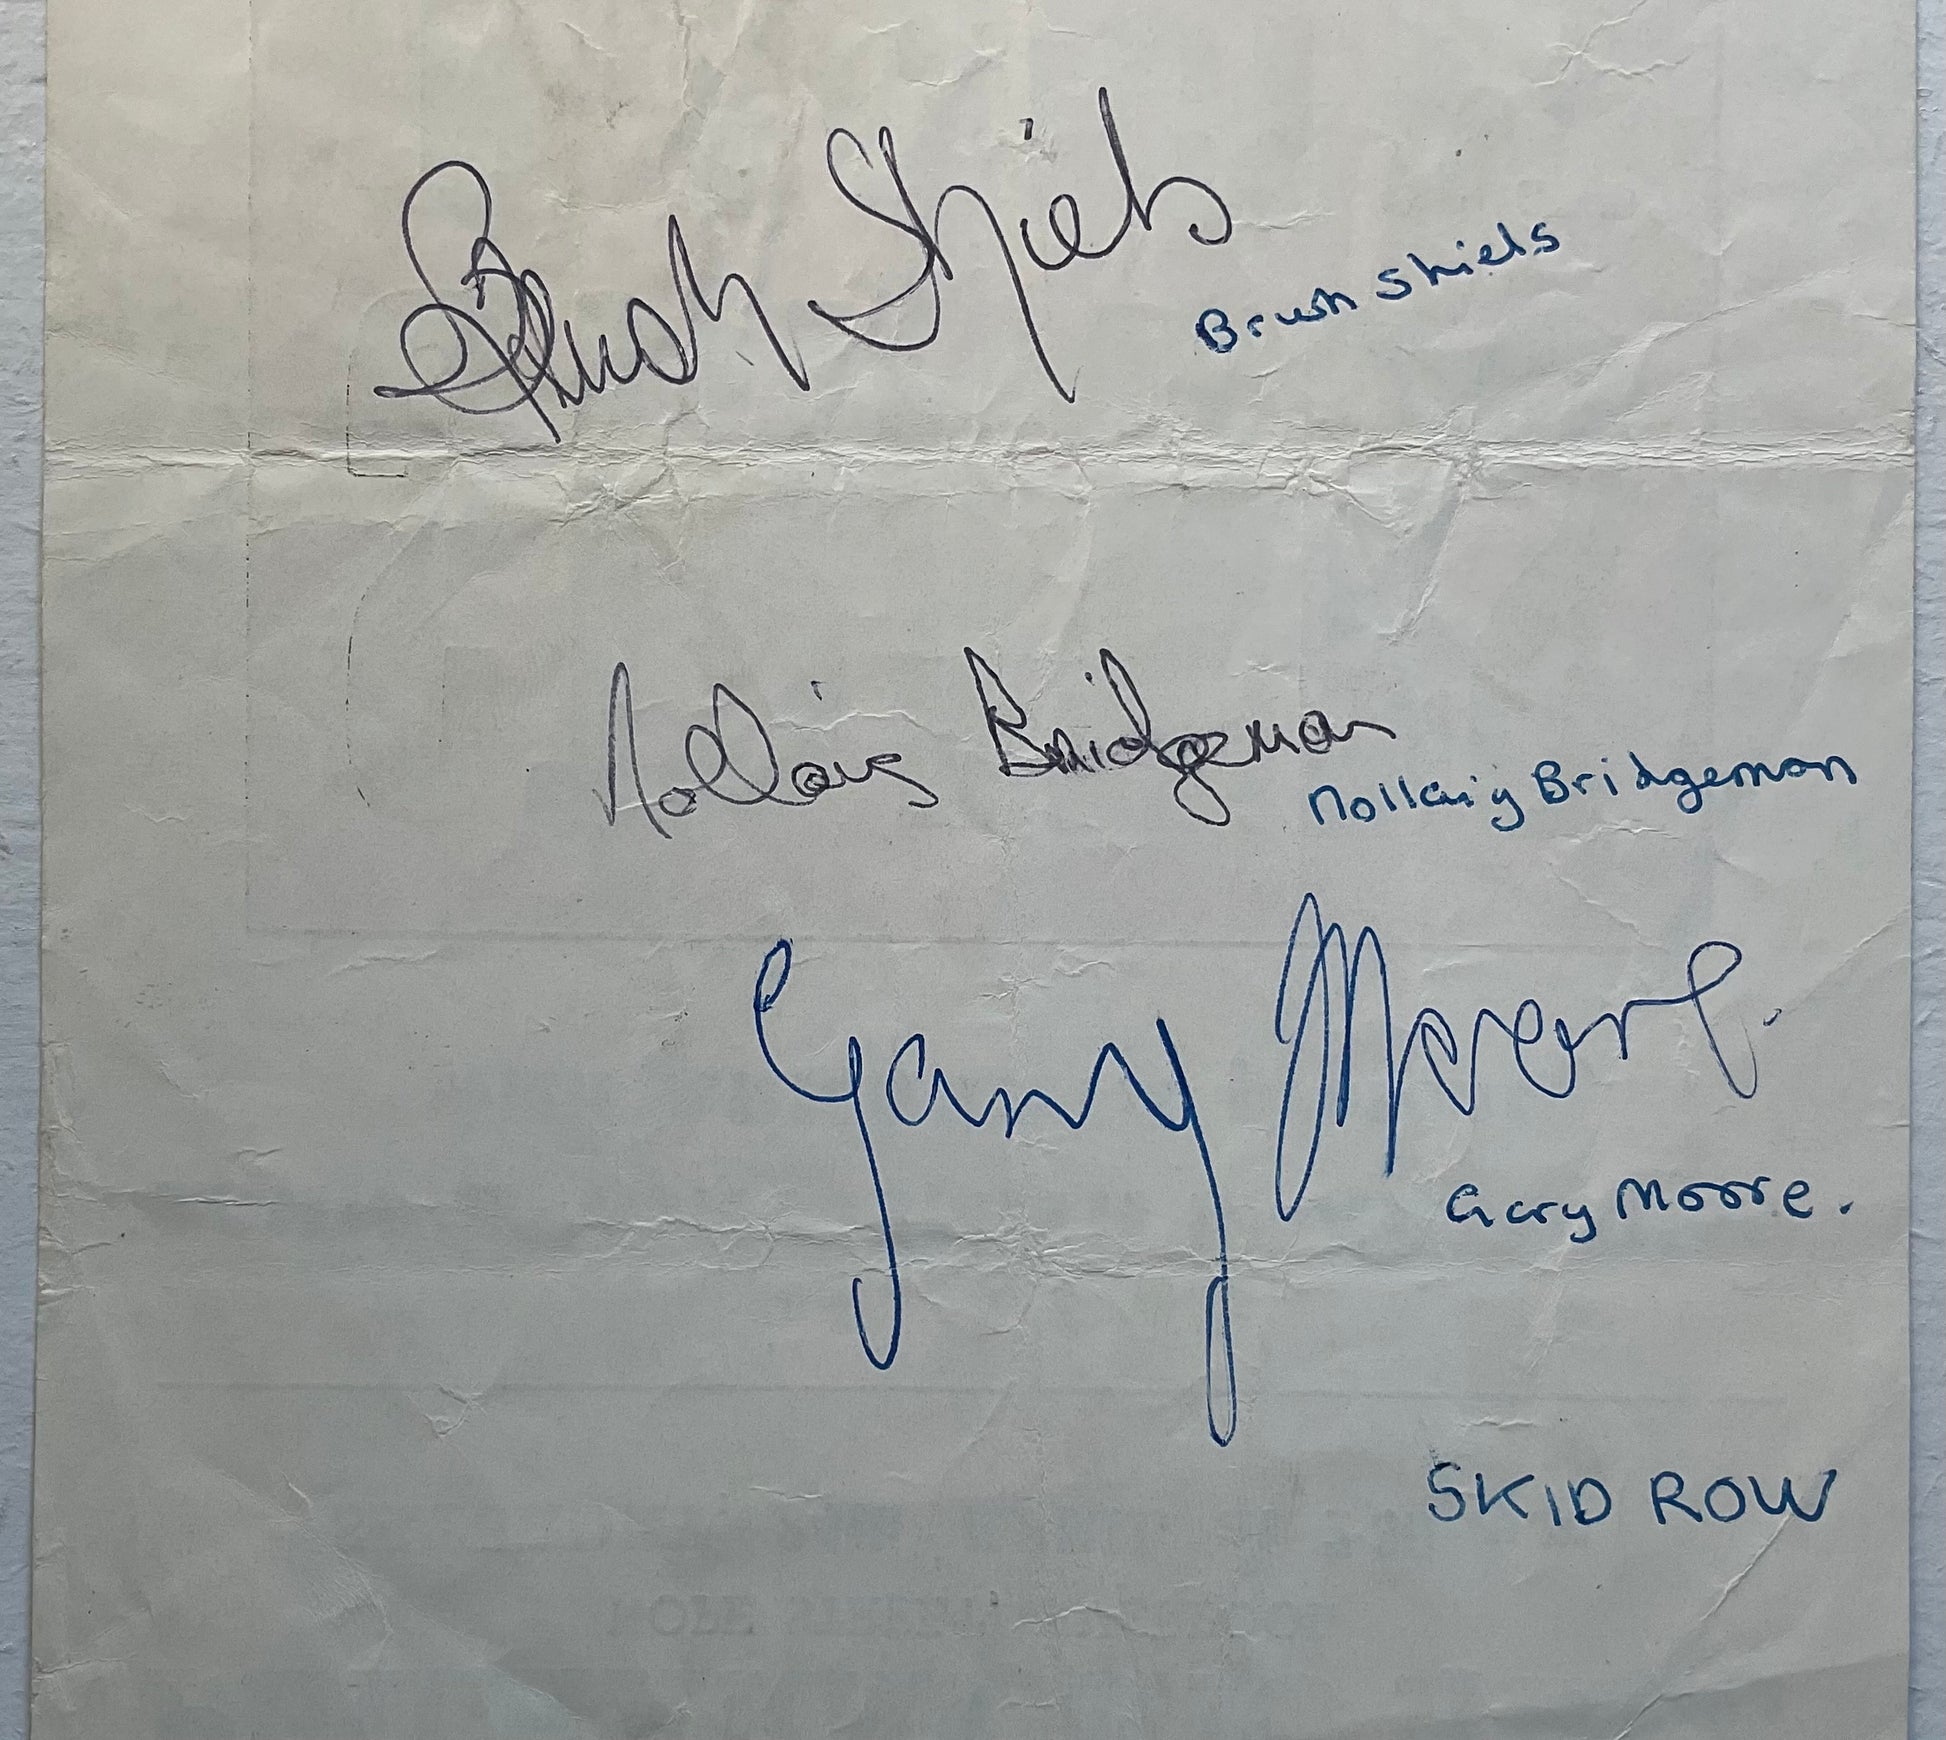 Brush Shiels
Brush Shiels
Nollaig Bridgeman
Nollaig Bridgeman
Gary Moore.
Gary Moore.
SKID ROW